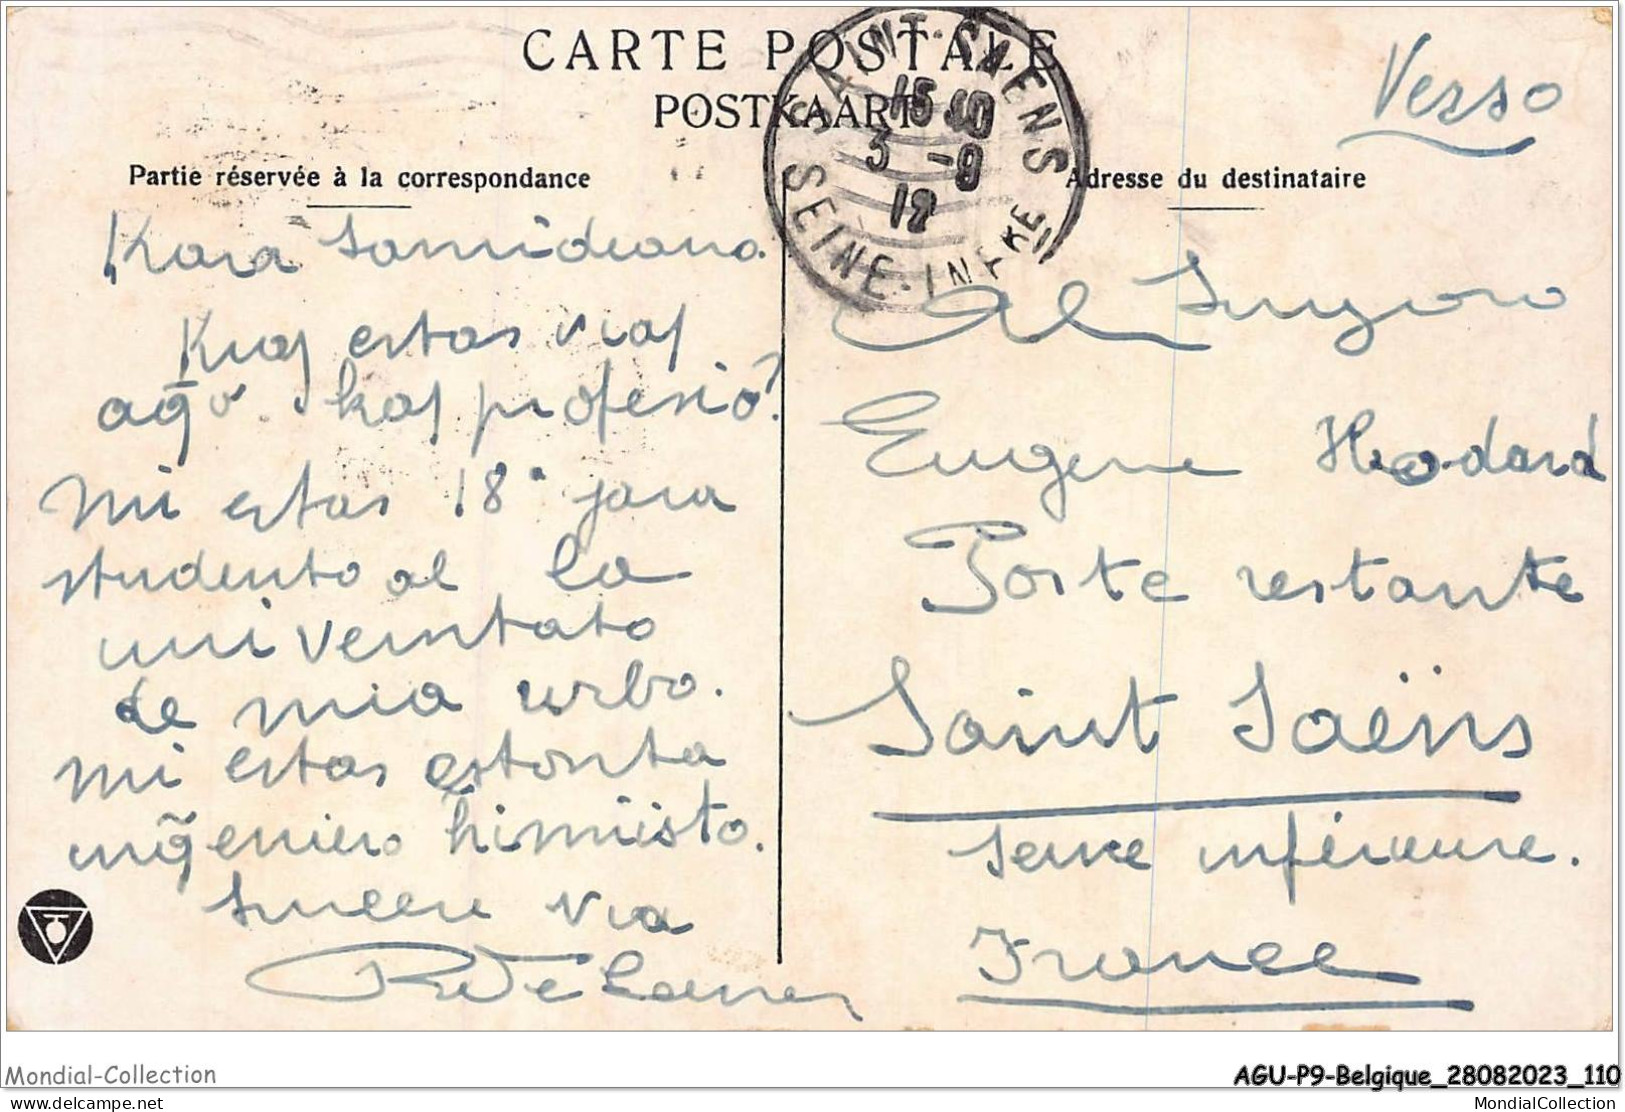 CARTE POSTALE
POSTKAART
Verso
SAINT-SAENS
15
3 -9
12
SEINE-INFRE
Partie réservée à la correspondance
Adresse du destinataire
Kara Samideano.
Kiaj estas viaj
aĝo kaj profesio?
mi estas 18a jara
studento al la
universitato
de mia urbo.
mi estas estonta
inĝeniero himiisto.
Sincere via
Al Sinjoro
Eugene Hodard
Poste restante
Saint Saëns
Seine inférieure.
France
Mondial-Collection
AGU-P9-Belgique_28082023_110
delcampe.net
MondialCollection